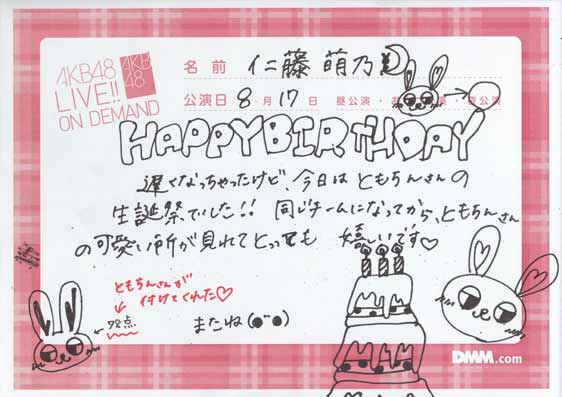 AKB48
LIVE!!
ON DEMAND
AKB
48
名前 仁藤 萌乃
公演日 8月17日 昼公演・ 公演
HAPPY BIRTHDAY
遅くなっちゃったけど、今日はともちんさんの
生誕祭でした!! 同じチームになってから、ともちんさん
の可愛い所が見れてとっても 嬉しいです♡
ともちんさんが
付けてくれた♡
←98点
またね(●°●)
DMM.com